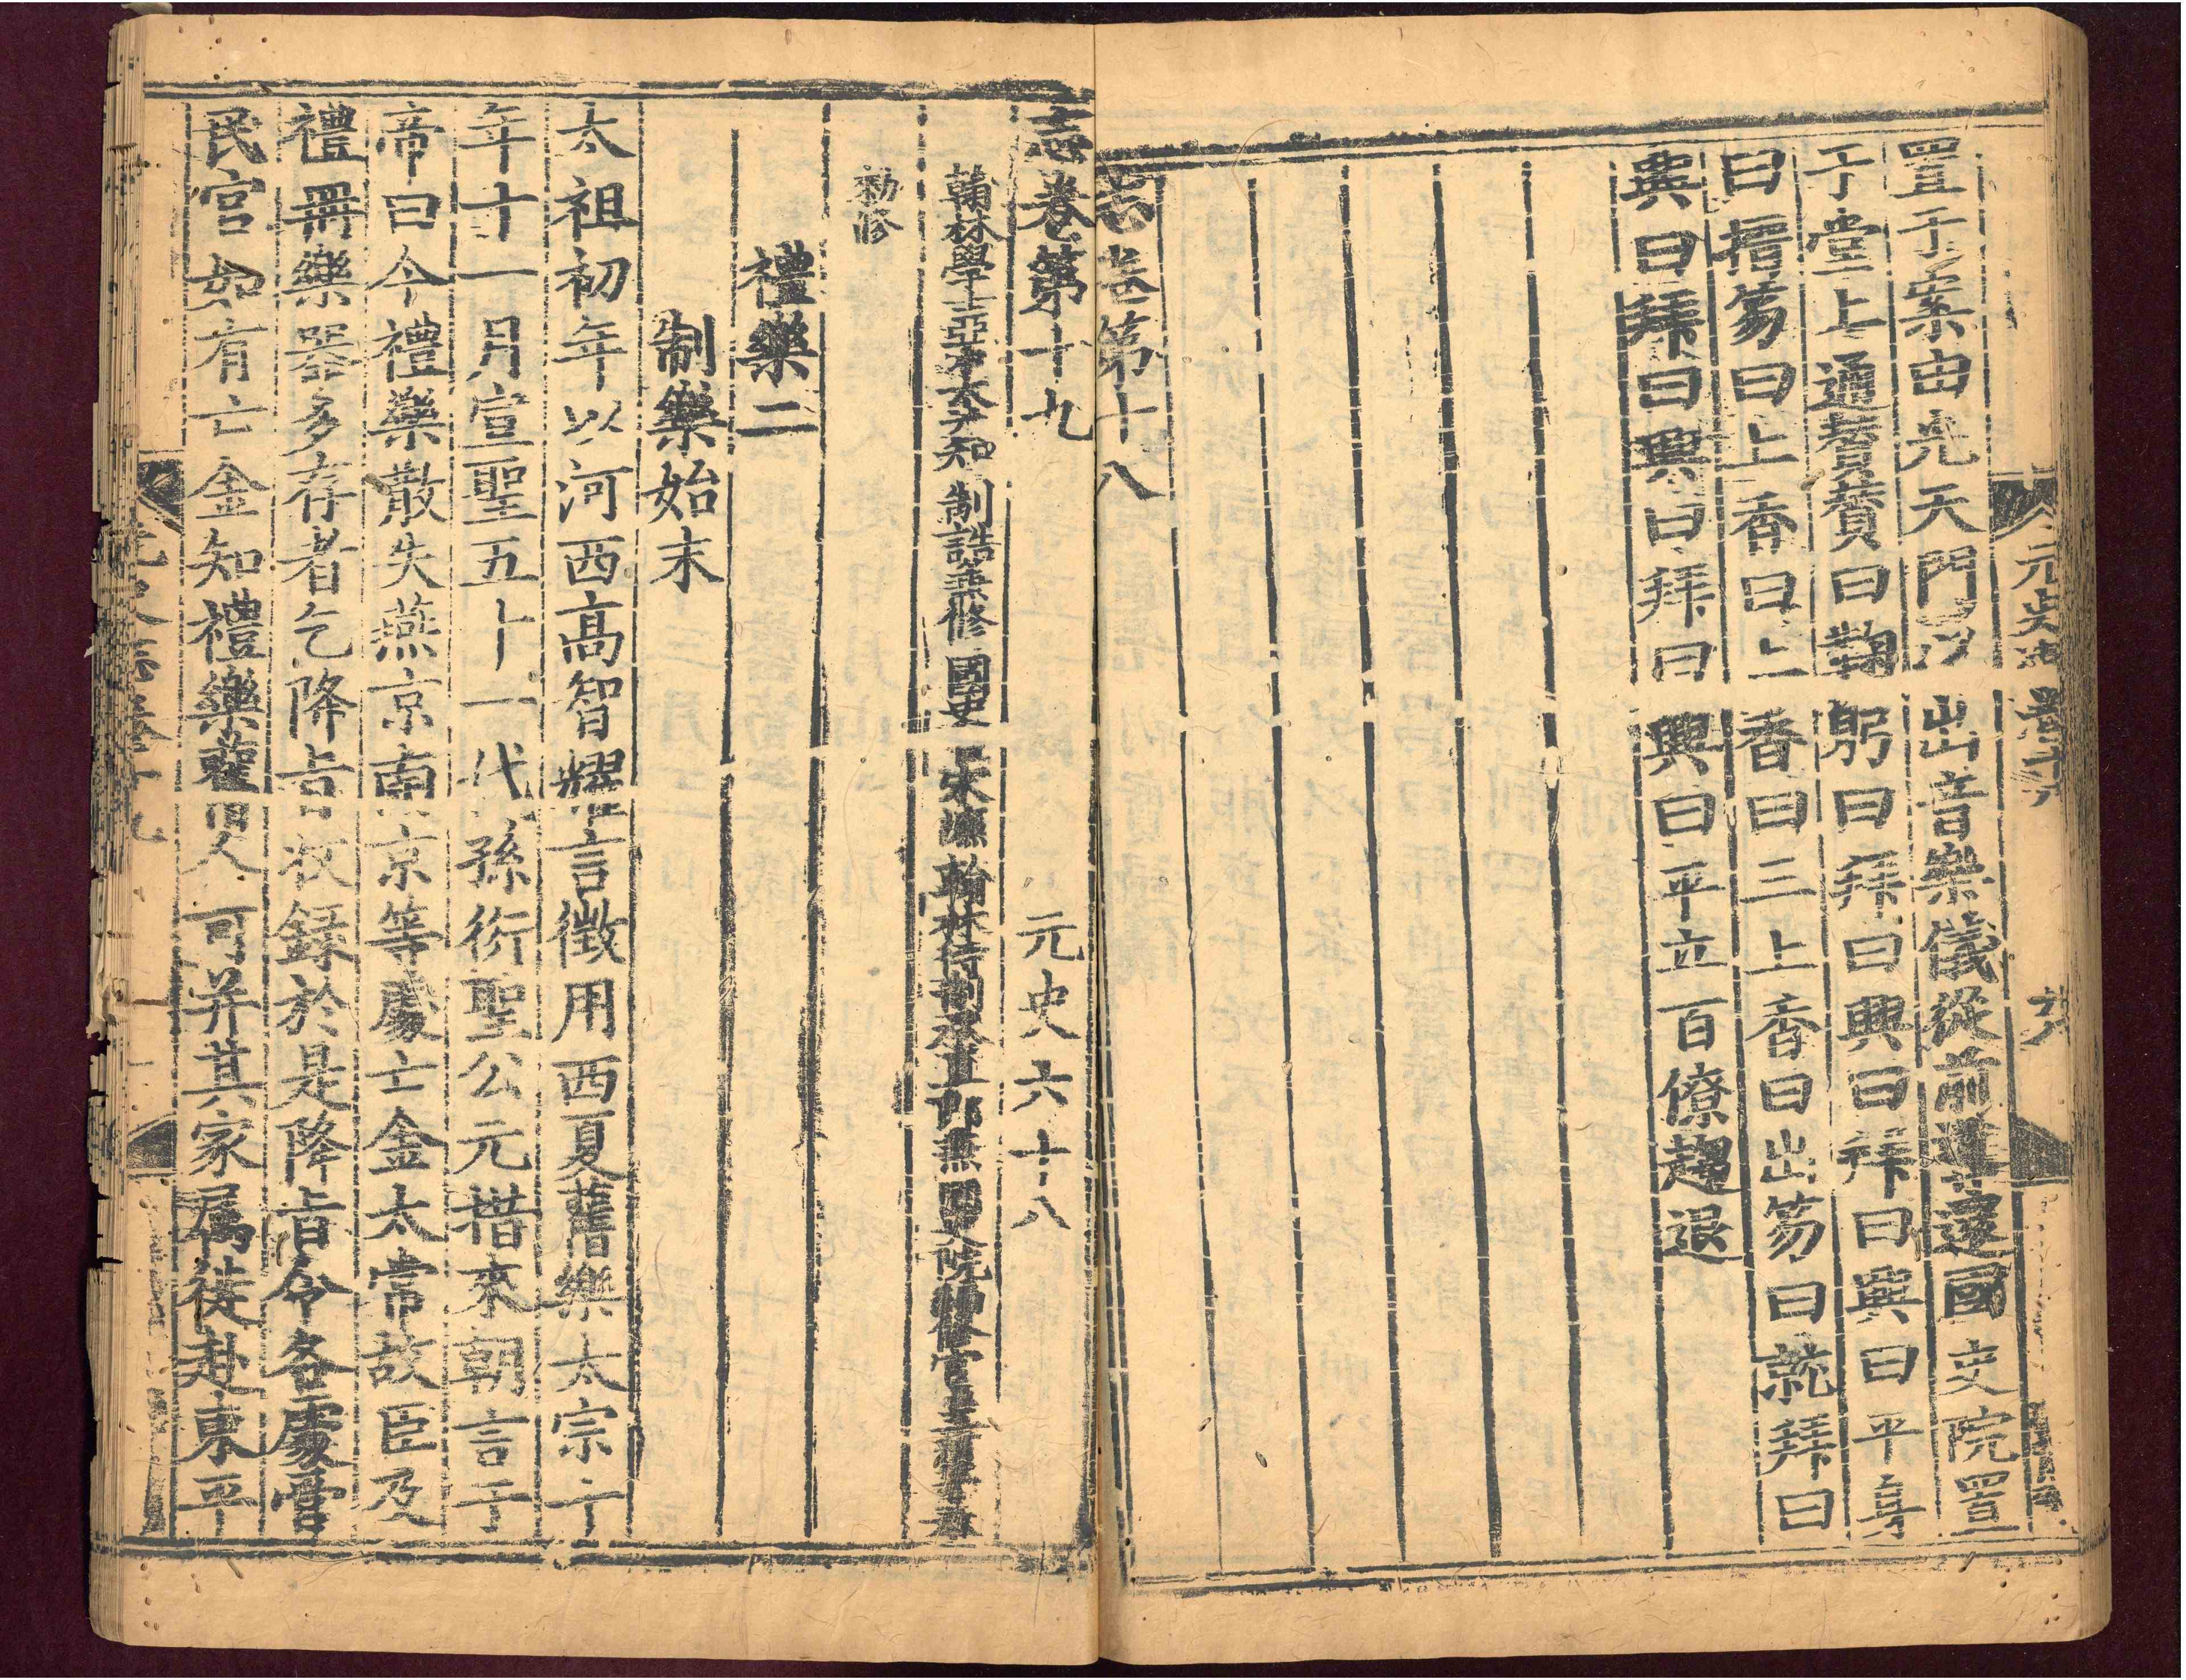 元史志 卷十八 六
置于案由光天門以出音樂儀從前導還國史院置
于堂上通贊贊曰鞠躬曰拜曰興曰拜曰興曰平身
曰搢笏曰上香曰上香曰三上香曰出笏曰就拜曰
興曰拜曰興曰拜曰興曰平立百僚趨退
志卷第十八
志卷第十九 元史六十八
翰林學士亞中大夫知制誥兼修國史宋濂翰林待制承直郎兼國史院編修官王禕等奉
勑修
禮樂二
制樂始末
太祖初年以河西高智耀言徵用西夏舊樂太宗十
年十一月宣聖五十一代孫衍聖公元措來朝言于
帝曰今禮樂散失燕京南京等處亡金太常故臣及
禮冊樂器多存者乞降旨收錄於是降旨令各處管
民官如有亡金知禮樂舊人可并其家屬徙赴東平